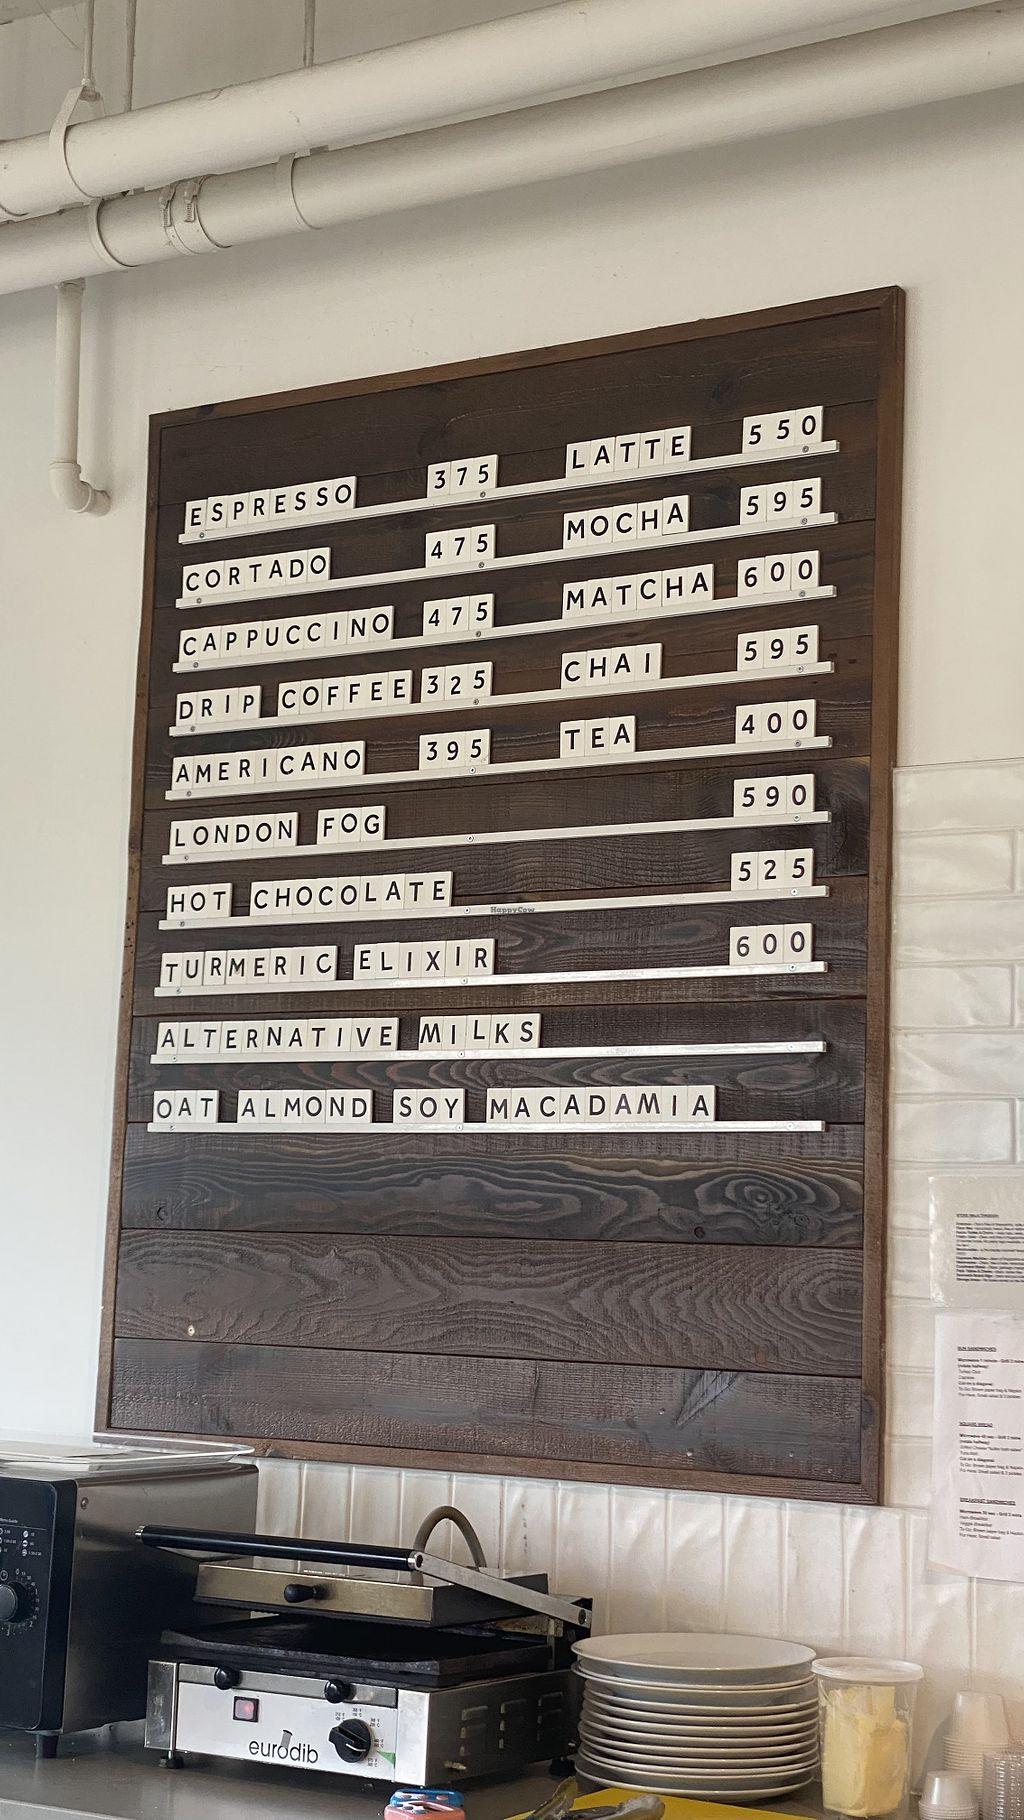 ESPRESSO 375 LATTE 550
CORTADO 475 MOCHA 595
CAPPUCCINO 475 MATCHA 600
DRIP COFFEE 325 CHAI 595
AMERICANO 395 TEA 400
LONDON FOG 590
HOT CHOCOLATE 525
HappyCow
TURMERIC ELIXIR 600
ALTERNATIVE MILKS
OAT ALMOND SOY MACADAMIA
SQUARE BREAD
BREAKFAST SANDWICHES
eurodib